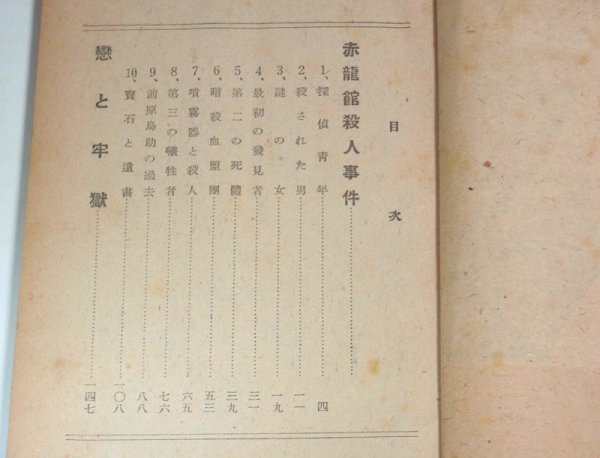 目次
赤龍館殺人事件
1、探偵青年 四
2、殺された男 一一
3、謎の女 一九
4、最初の發見者 三一
5、第二の死體 三九
6、暗殺血盟團 五三
7、噴霧器と殺人 六五
8、第三の犧牲者 七六
9、前原島助の過去 八八
10、寶石と遺書 一〇八
戀と牢獄 一四七